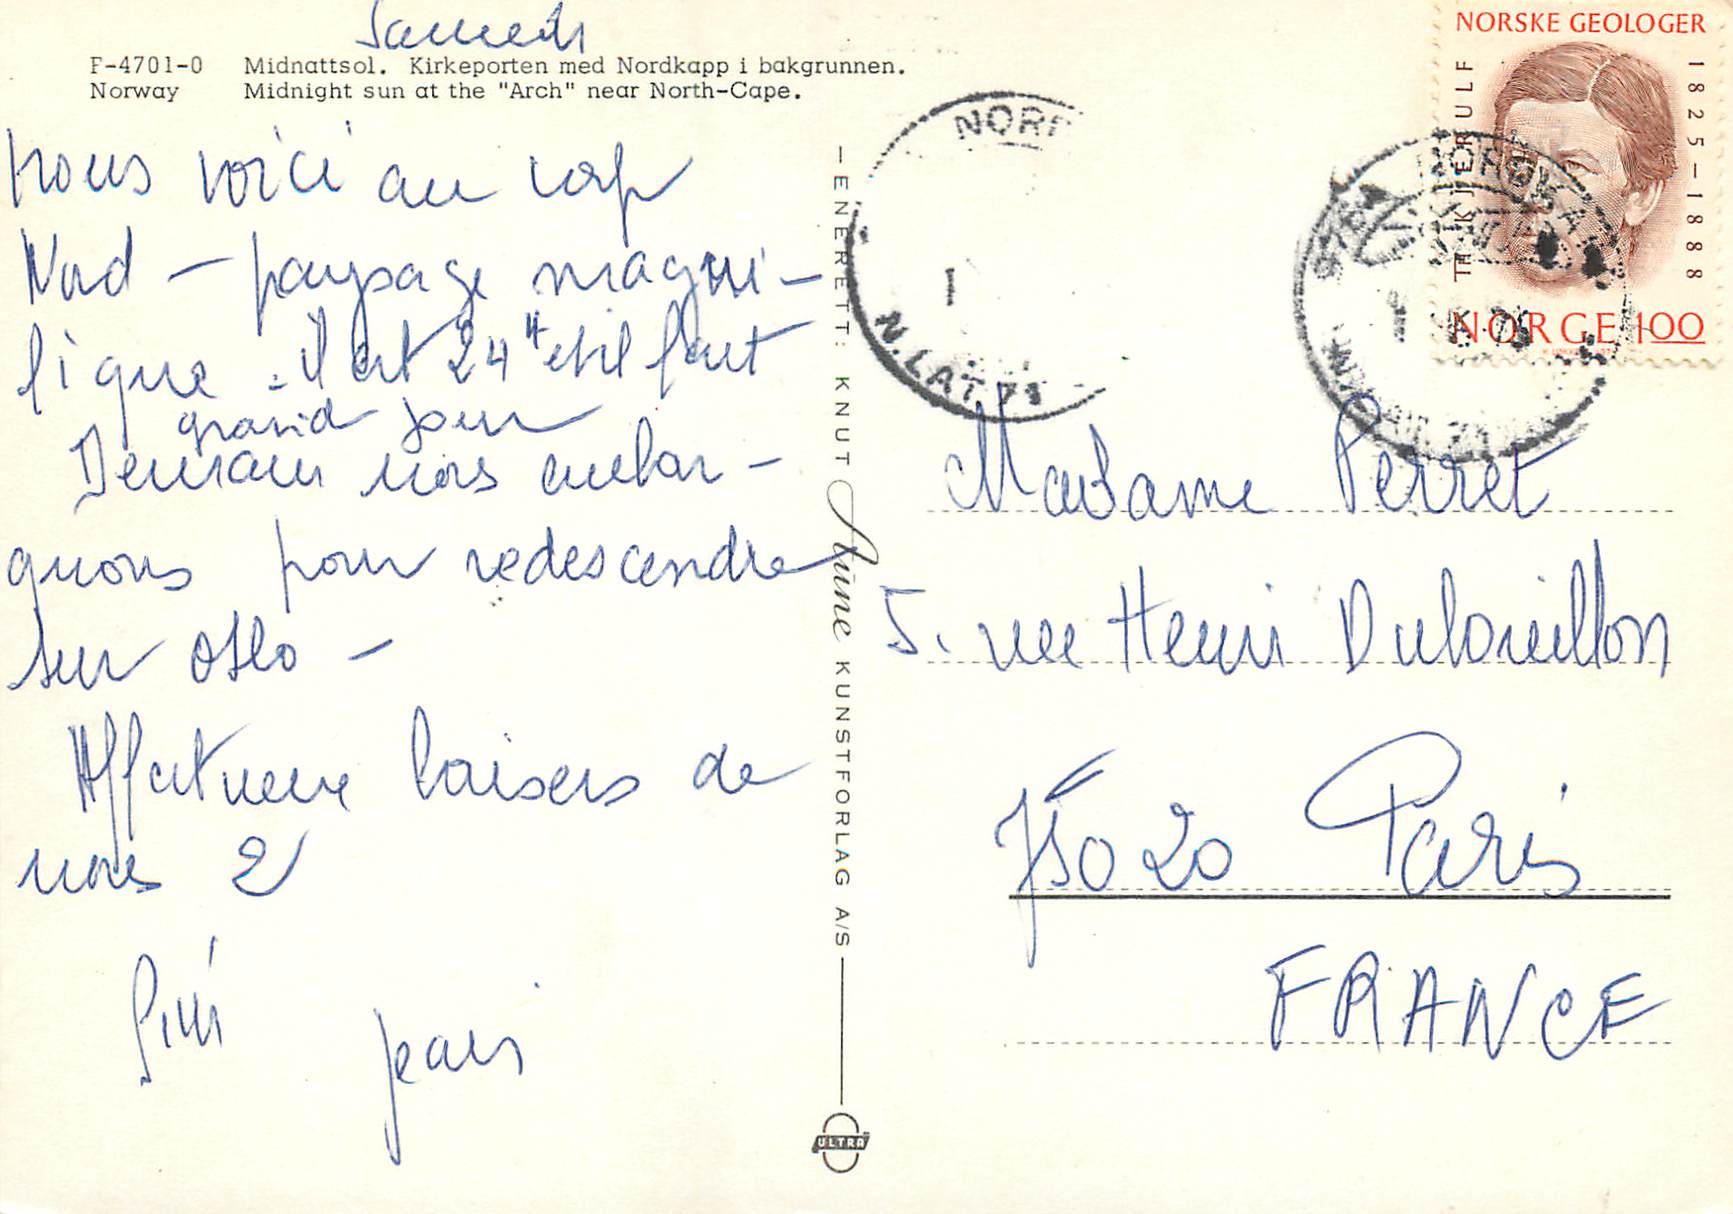 Samedi
F-4701-0 Midnattsol. Kirkeporten med Nordkapp i bakgrunnen.
Norway Midnight sun at the "Arch" near North-Cape.
nous voici au cap
Nord – paysage magni-
fique . il est 24 H et il fait
grand jour
Demain nous embar-
quons pour redescendre
sur Oslo –
Affectueux baisers de
nous 2
Jean
– ENERETT: KNUT Aune KUNSTFORLAG A/S
ULTRA
NORSKE GEOLOGER
TH. KJERULF
1825–1888
NORGE 100
NORD
1
N.LAT. 71
NORDKAP
Madame Perret
5. rue Henri Dubouillon
75020 Paris
FRANCE